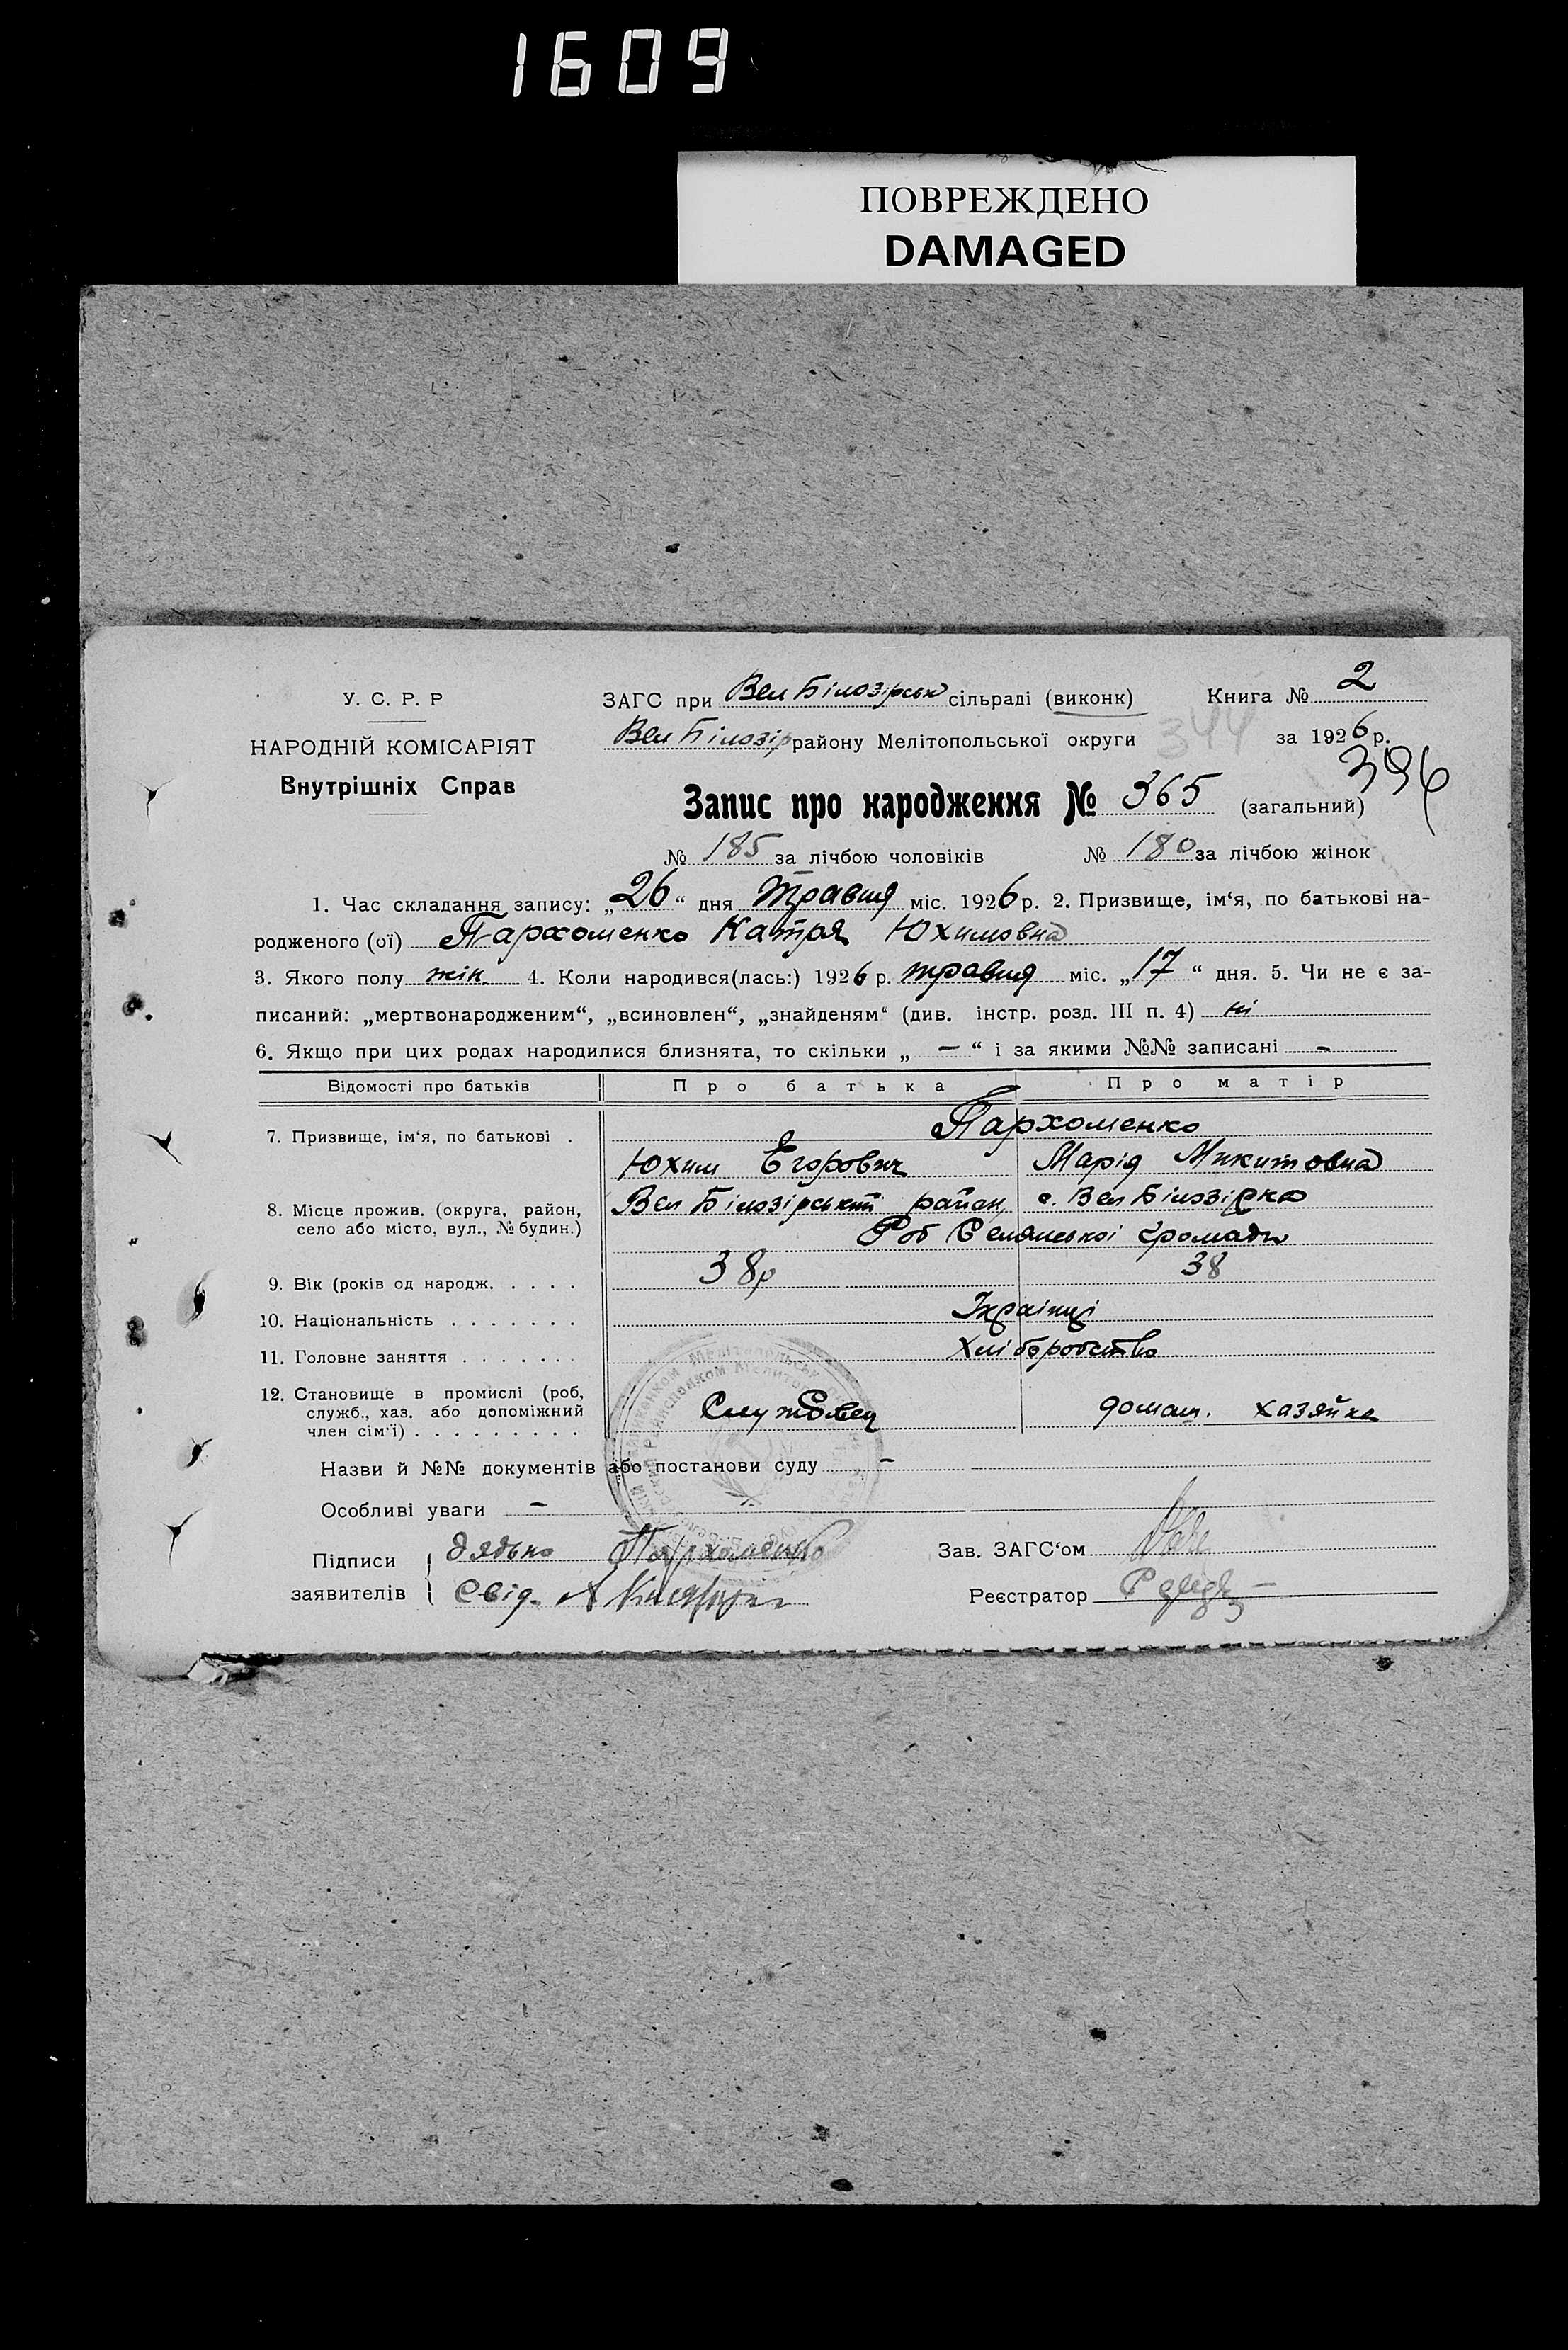 1609
ПОВРЕЖДЕНО
DAMAGED
У. С. Р. Р
НАРОДНІЙ КОМІСАРІЯТ
Внутрішніх Справ
ЗАГС при Вел Білозірськ сільраді (виконк) Книга № 2
Вел Білозір району Мелітопольської округи 344 за 1926 р.
396
Запис про народження № 365 (загальний)
№ 185 за лічбою чоловіків № 180 за лічбою жінок
1. Час складання запису: „26“ дня травня міс. 1926 р. 2. Призвище, ім‘я, по батькові на-
родженого (ої) Пархоменко Катря Юхимовна
3. Якого полу жін. 4. Коли народився(лась:) 1926 р. травня міс. „17“ дня. 5. Чи не є за-
писаний: „мертвонародженим“, „всиновлен“, „знайденям“ (див. інстр. розд. III п. 4) ні
6. Якщо при цих родах народилися близнята, то скільки „ — “ і за якими №№ записані -
Відомості про батьків Про батька Про матір
7. Призвище, ім‘я, по батькові . Пархоменко
Юхим Егорович Марія Микитовна
8. Місце прожив. (округа, район, село або місто, вул., № будин.) Вел Білозірський район, с. Вел Білозірка
Роб Селянської громади
9. Вік (років од народж. . . . . 38р 38
10. Національність . . . . . . . Українці
11. Головне заняття . . . . . . . Хліборобство
12. Становище в промислі (роб,
служб., хаз. або допоміжний
член сім‘ї) . . . . . . . . . Службовец домаш. хазяйка
Назви й №№ документів або постанови суду -
Особливі уваги -
Підписи дядько Пархоменко Зав. ЗАГС‘ом
заявителів свід. А Реєстратор